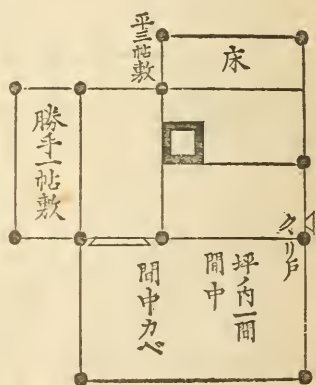 平三帖敷
床
勝手一帖敷
クヽリ戸
坪ノ内一間
間中
間中カベ